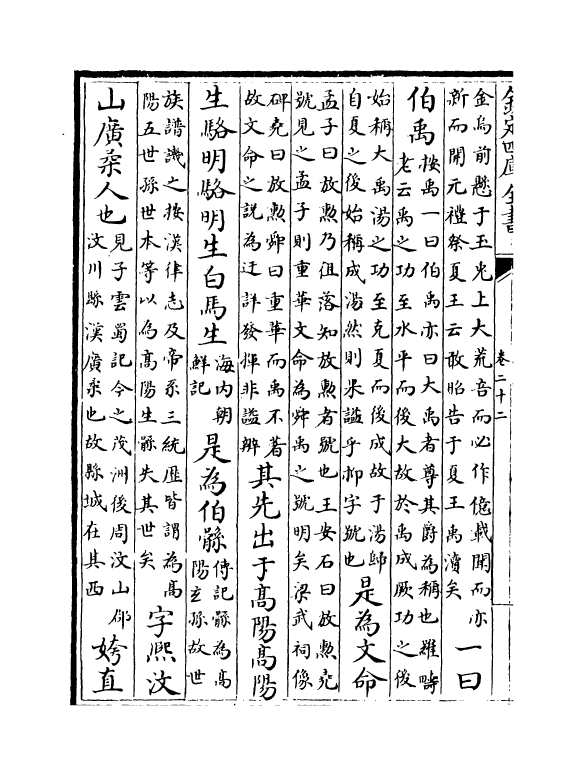 欽定四庫全書
卷二十二
金烏前懸于玉光上大荒音而必作億載開而亦
新而開元禮祭夏王云敢昭告于夏王禹瀆矣
一曰
伯禹
按禹一曰伯禹亦曰大禹者尊其爵為稱也羅疇
老云禹之功至水平而後大故於禹成厥功之後
始稱大禹湯之功至克夏而後成故于湯歸
自夏之後始稱成湯然則果謚乎抑字號也
是為文命
孟子曰放勲乃徂落知放勲者號也王安石曰放勲堯
號見之孟子則重華文命為舜禹之號明矣梁武祠像
碑堯曰放勲舜曰重華而禹不著
故文命之説為迂詳發揮非謚辨
其先出于髙陽髙陽
生駱明駱明生白馬生
海内朝
鮮記
是為伯鯀
傳記鯀為髙
陽玄孫故世
族譜譏之按漢律志及帝系三統歴皆謂為髙
陽五世孫世本等以為髙陽生鯀失其世矣
字熈汶
山廣柔人也
見子雲蜀記今之茂洲後周汶山郡
汶川縣漢廣柔也故縣城在其西
婞直